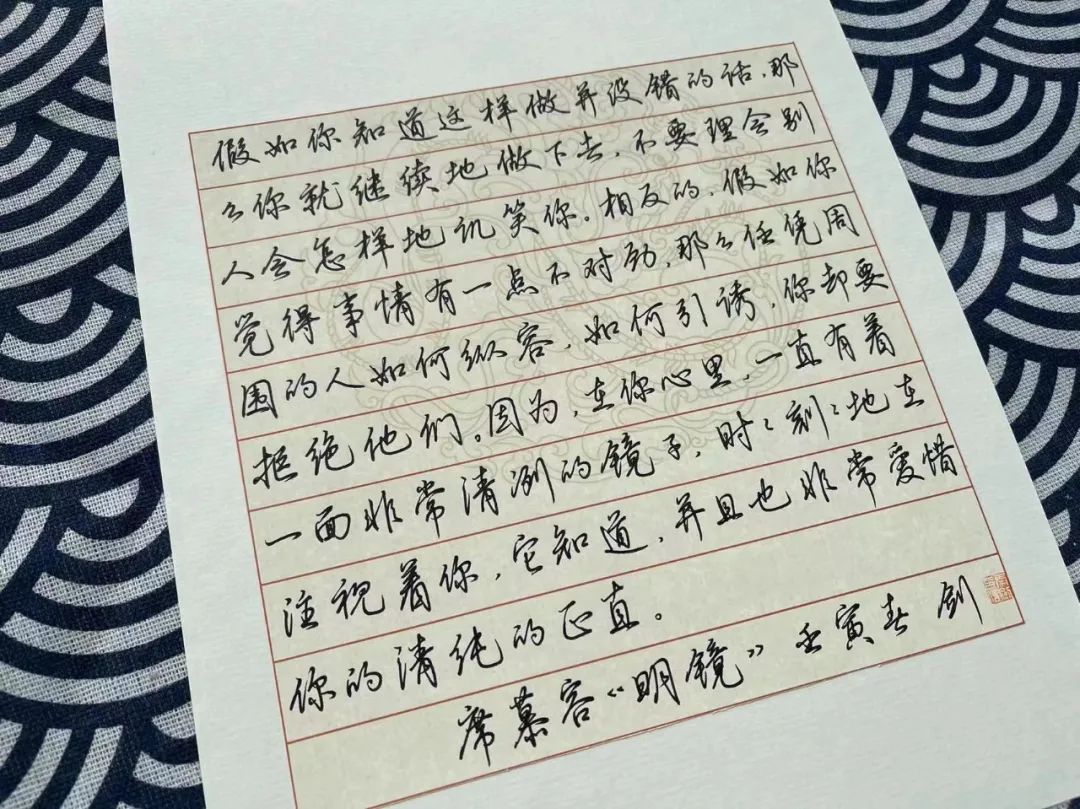 假如你知道这样做并没错的话，那
么你就继续地做下去，不要理会别
人会怎样地讥笑你。相反的，假如你
觉得事情有一点不对劲，那么任凭周
围的人如何纵容，如何引诱，你却要
拒绝他们。因为，在你心里，一直有着
一面非常清洌的镜子，时〻刻〻地在
注视着你，它知道，并且也非常爱惜
你的清纯的正直。
席慕容《明镜》壬寅春 剑